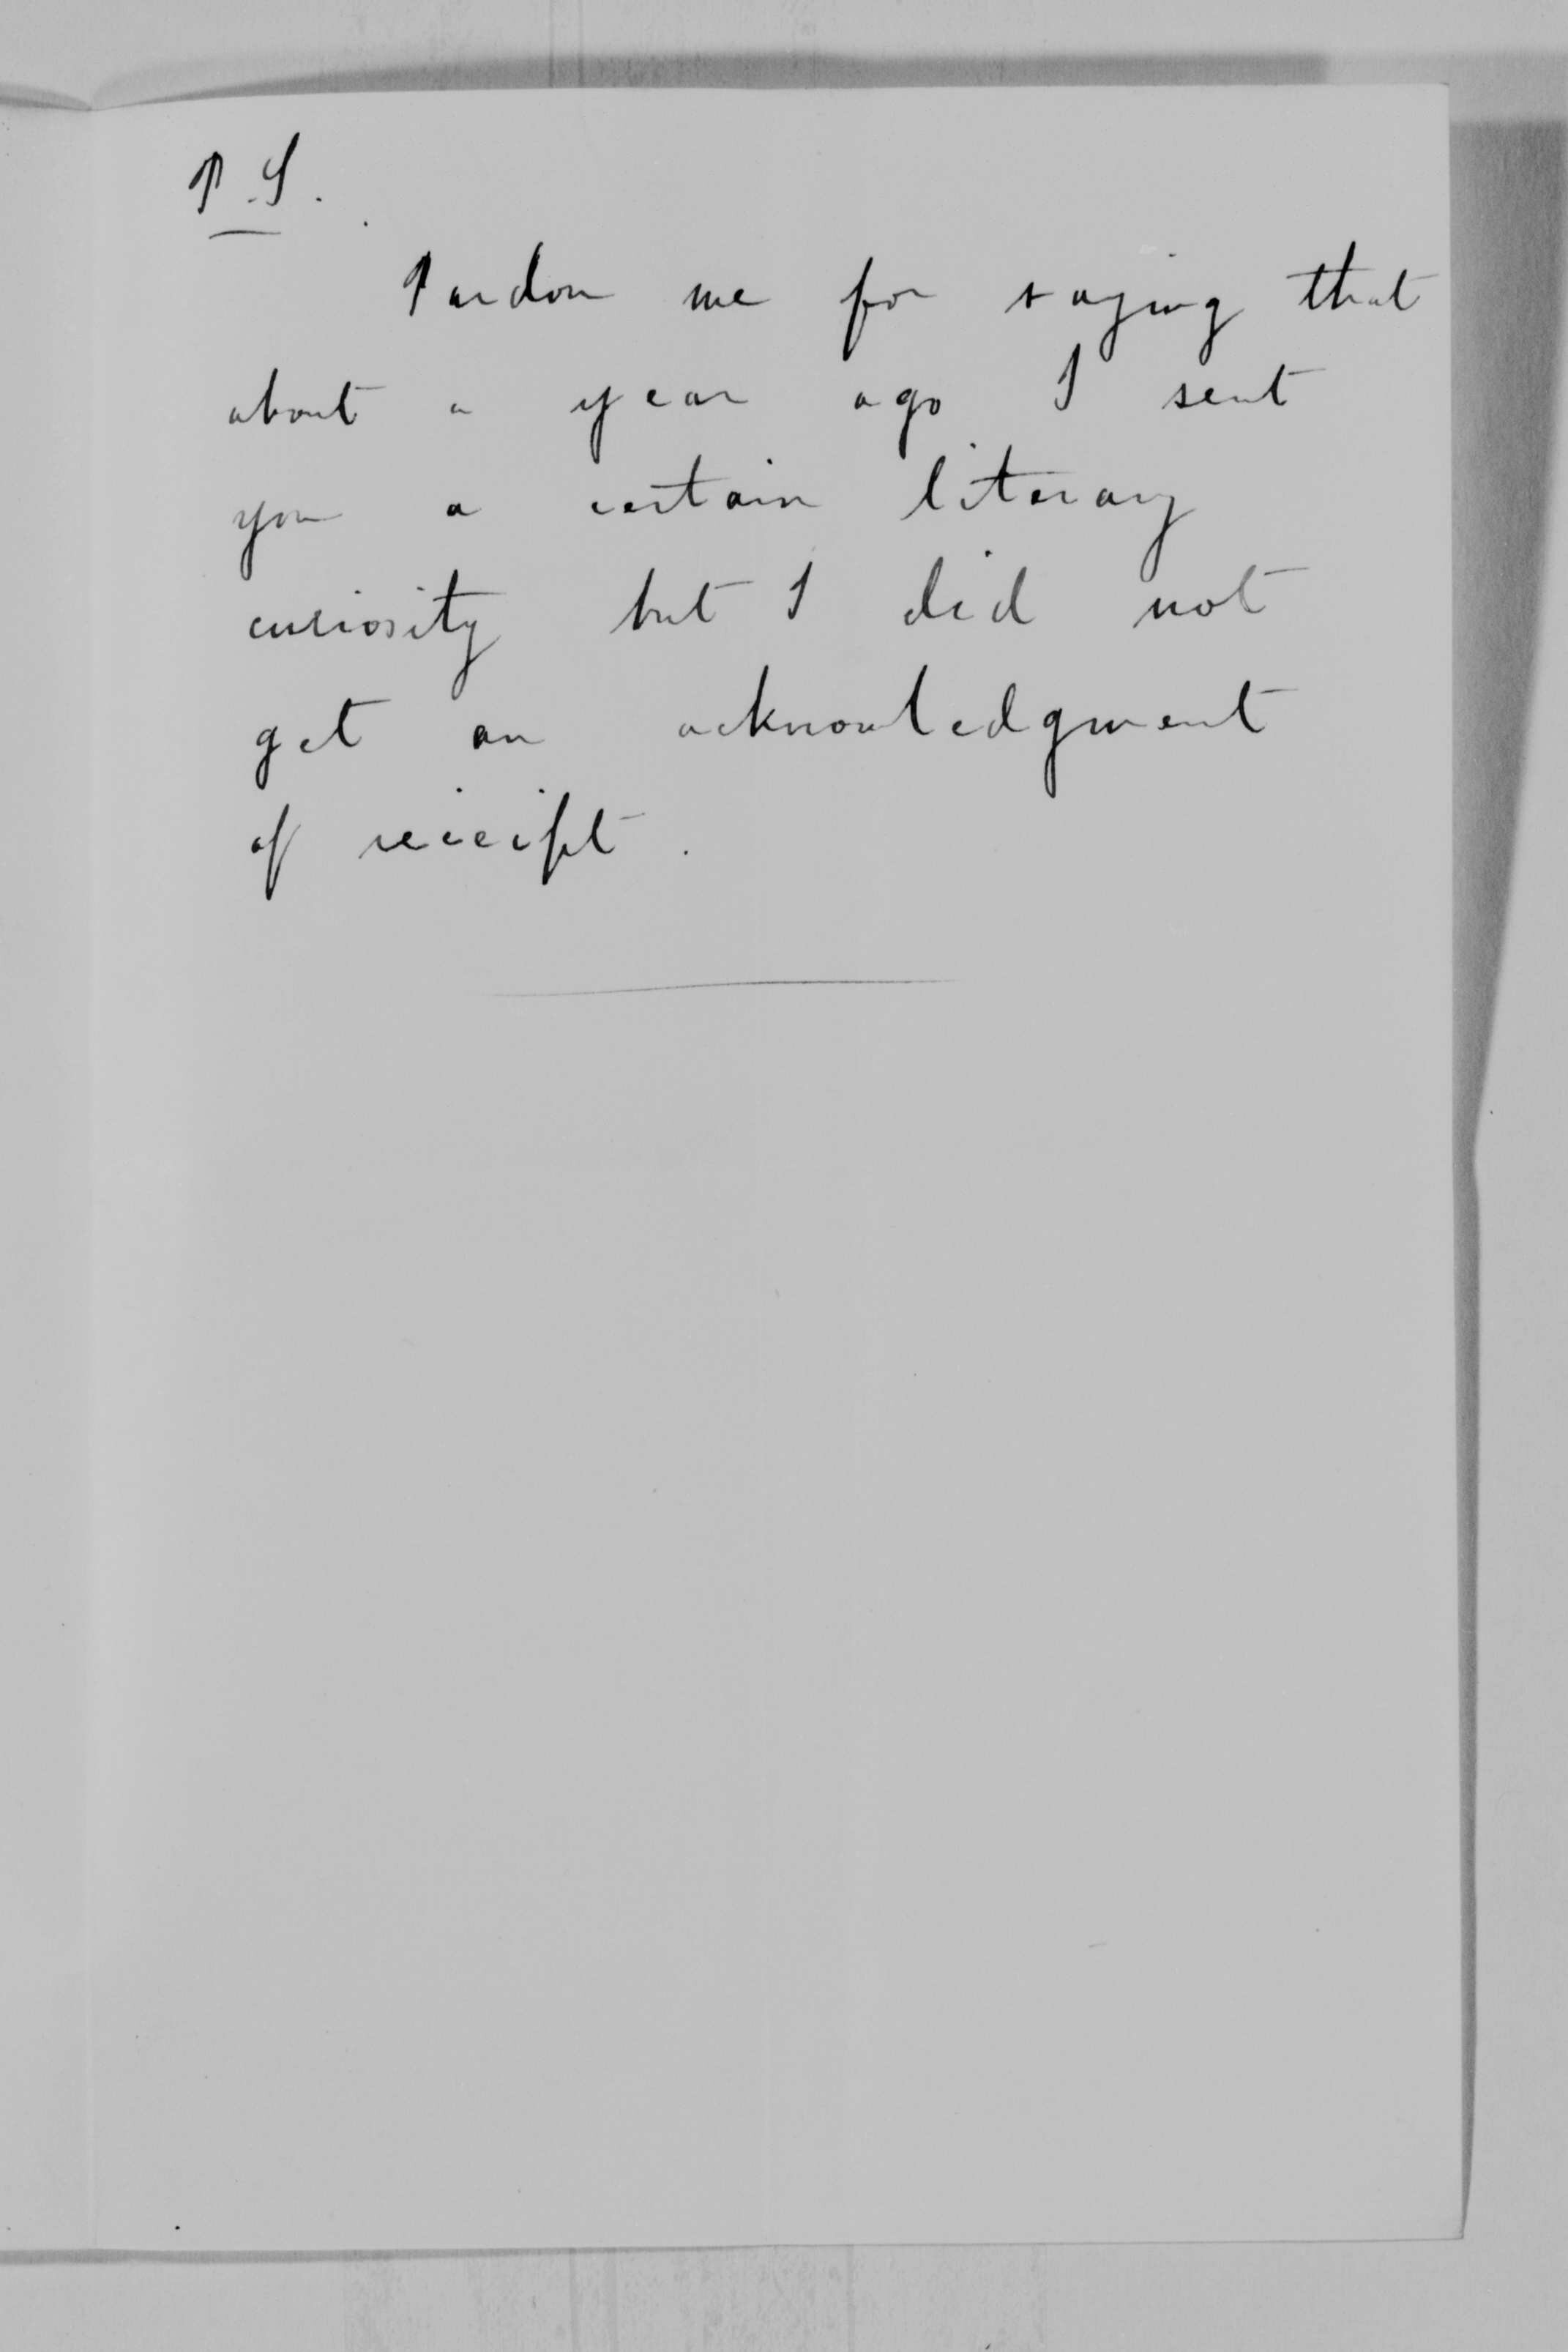 P.S.
Pardon me for saying that
about a year ago I sent
you a certain literary
curiosity but I did not
get an acknowledgment
of receipt.